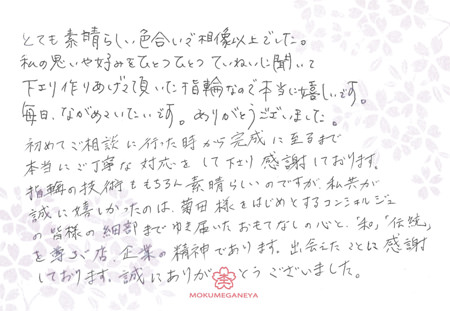 とても素晴らしい色合いで想像以上でした。
私の思いや好みをひとつひとつていねいに聞いて
下さり作りあげて頂いた指輪なので本当に嬉しいです。
毎日、ながめていたいです。ありがとうございました。
初めてご相談に行った時から完成に至るまで
本当にご丁寧な対応をして下さり感謝しております。
指輪の技術ももちろん素晴らしいのですが、私共が
誠に嬉しかったのは、菊田様をはじめとするコンシェルジュ
の皆様の細部までゆき届いたおもてなしの心と、「和」「伝統」
を尊ぶ御店、企業の精神であります。出会えたことに感謝
しております。誠にありがとうございました。
MOKUMEGANEYA